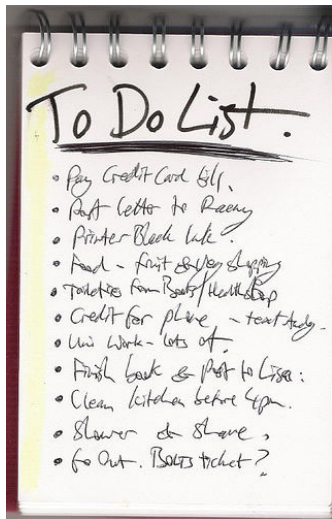 To Do List.
• Pay Credit Card bill.
• Post letter to
• Printer Black Ink.
• Food - fruit & veg shopping
• Toiletries from Boots/Health shop
• Credit for phone - text
• Uni Work - lots of.
• Finish book & Post to Lisa:
• Clean kitchen before 4pm.
• Shower & Shave,
• Go Out. ticket?